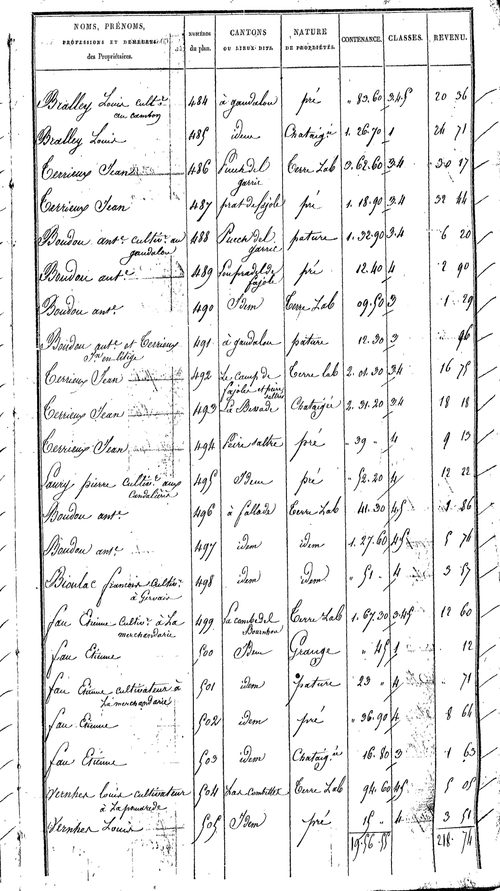 NOMS, PRÉNOMS, PROFESSIONS ET DEMEURES des Propriétaires. NUMÉROS du plan. CANTONS OU LIEUX-DITS. NATURE DE PROPRIÉTÉS. CONTENANCE. CLASSES. REVENU.
Bralley Louis cultr. 484 à gaudalou pré " 83.60 3.4.5 20 36
au camboy
Bralley Louis 485 idem Chataigie 1.26.70 1 24 71
Terrieux Jean 486 Puech del Terre Lab 3.62.60 3.4 30 17
garric
Terrieux Jean 487 prat de fajole pré 1.18.90 3.4 32 44
Boudou ante. cultivr. au 488 Puech del pature 1.32.90 3.4 6 20
gaudalou garric
Boudou ante. 489 Lou pradel de pré 12.40 4 2 90
fajole
Boudou ante. 490 Idem Terre Lab 09.50 3 1 29
Boudou ante. et Terrieux 491 à gaudalou pature 12.30 3 " 96
Jn. en litige
Terrieux Jean 492 Le camp de Terre lab 2.01.30 3.4 16 75
fajole et peire
saltre
Terrieux Jean 493 La Bessade Chataigie 2.31.20 3.4 18 18
Terrieux Jean 494 Peire saltre pré " 39 " 4 9 13
Laury pierre cultivr. aux 495 Idem pré " 52.20 4 12 22
Boudou ant. 496 à fallade Terre Lab 41.30 4.5 1 86
Boudou ante. 497 idem idem 1.27.60 4.5 5 76
Bioulac francois cultivr. 498 idem idem " 51 " 4 3 57
à Gervais
fau Etienne cultivr. à La 499 La combe del Terre Lab 1.67.30 3.4.5 12 60
merchandarie
fau Etienne 500 Idem Grange " 45 1 " 12
fau Etienne cultivateur à 501 idem pature 23 " 4 " 71
La merchandarie
fau Etienne 502 idem pré " 36.90 4 8 64
fau Etienne 503 idem Chataigie 16.80 3 1 63
Vernhes Louis cultivateur 504 Las Combettes Terre Lab 94.60 4.5 5 05
à La poujade
Vernhes Louis 505 Idem pré 15 " 4 3 51
19.56.55 218.74